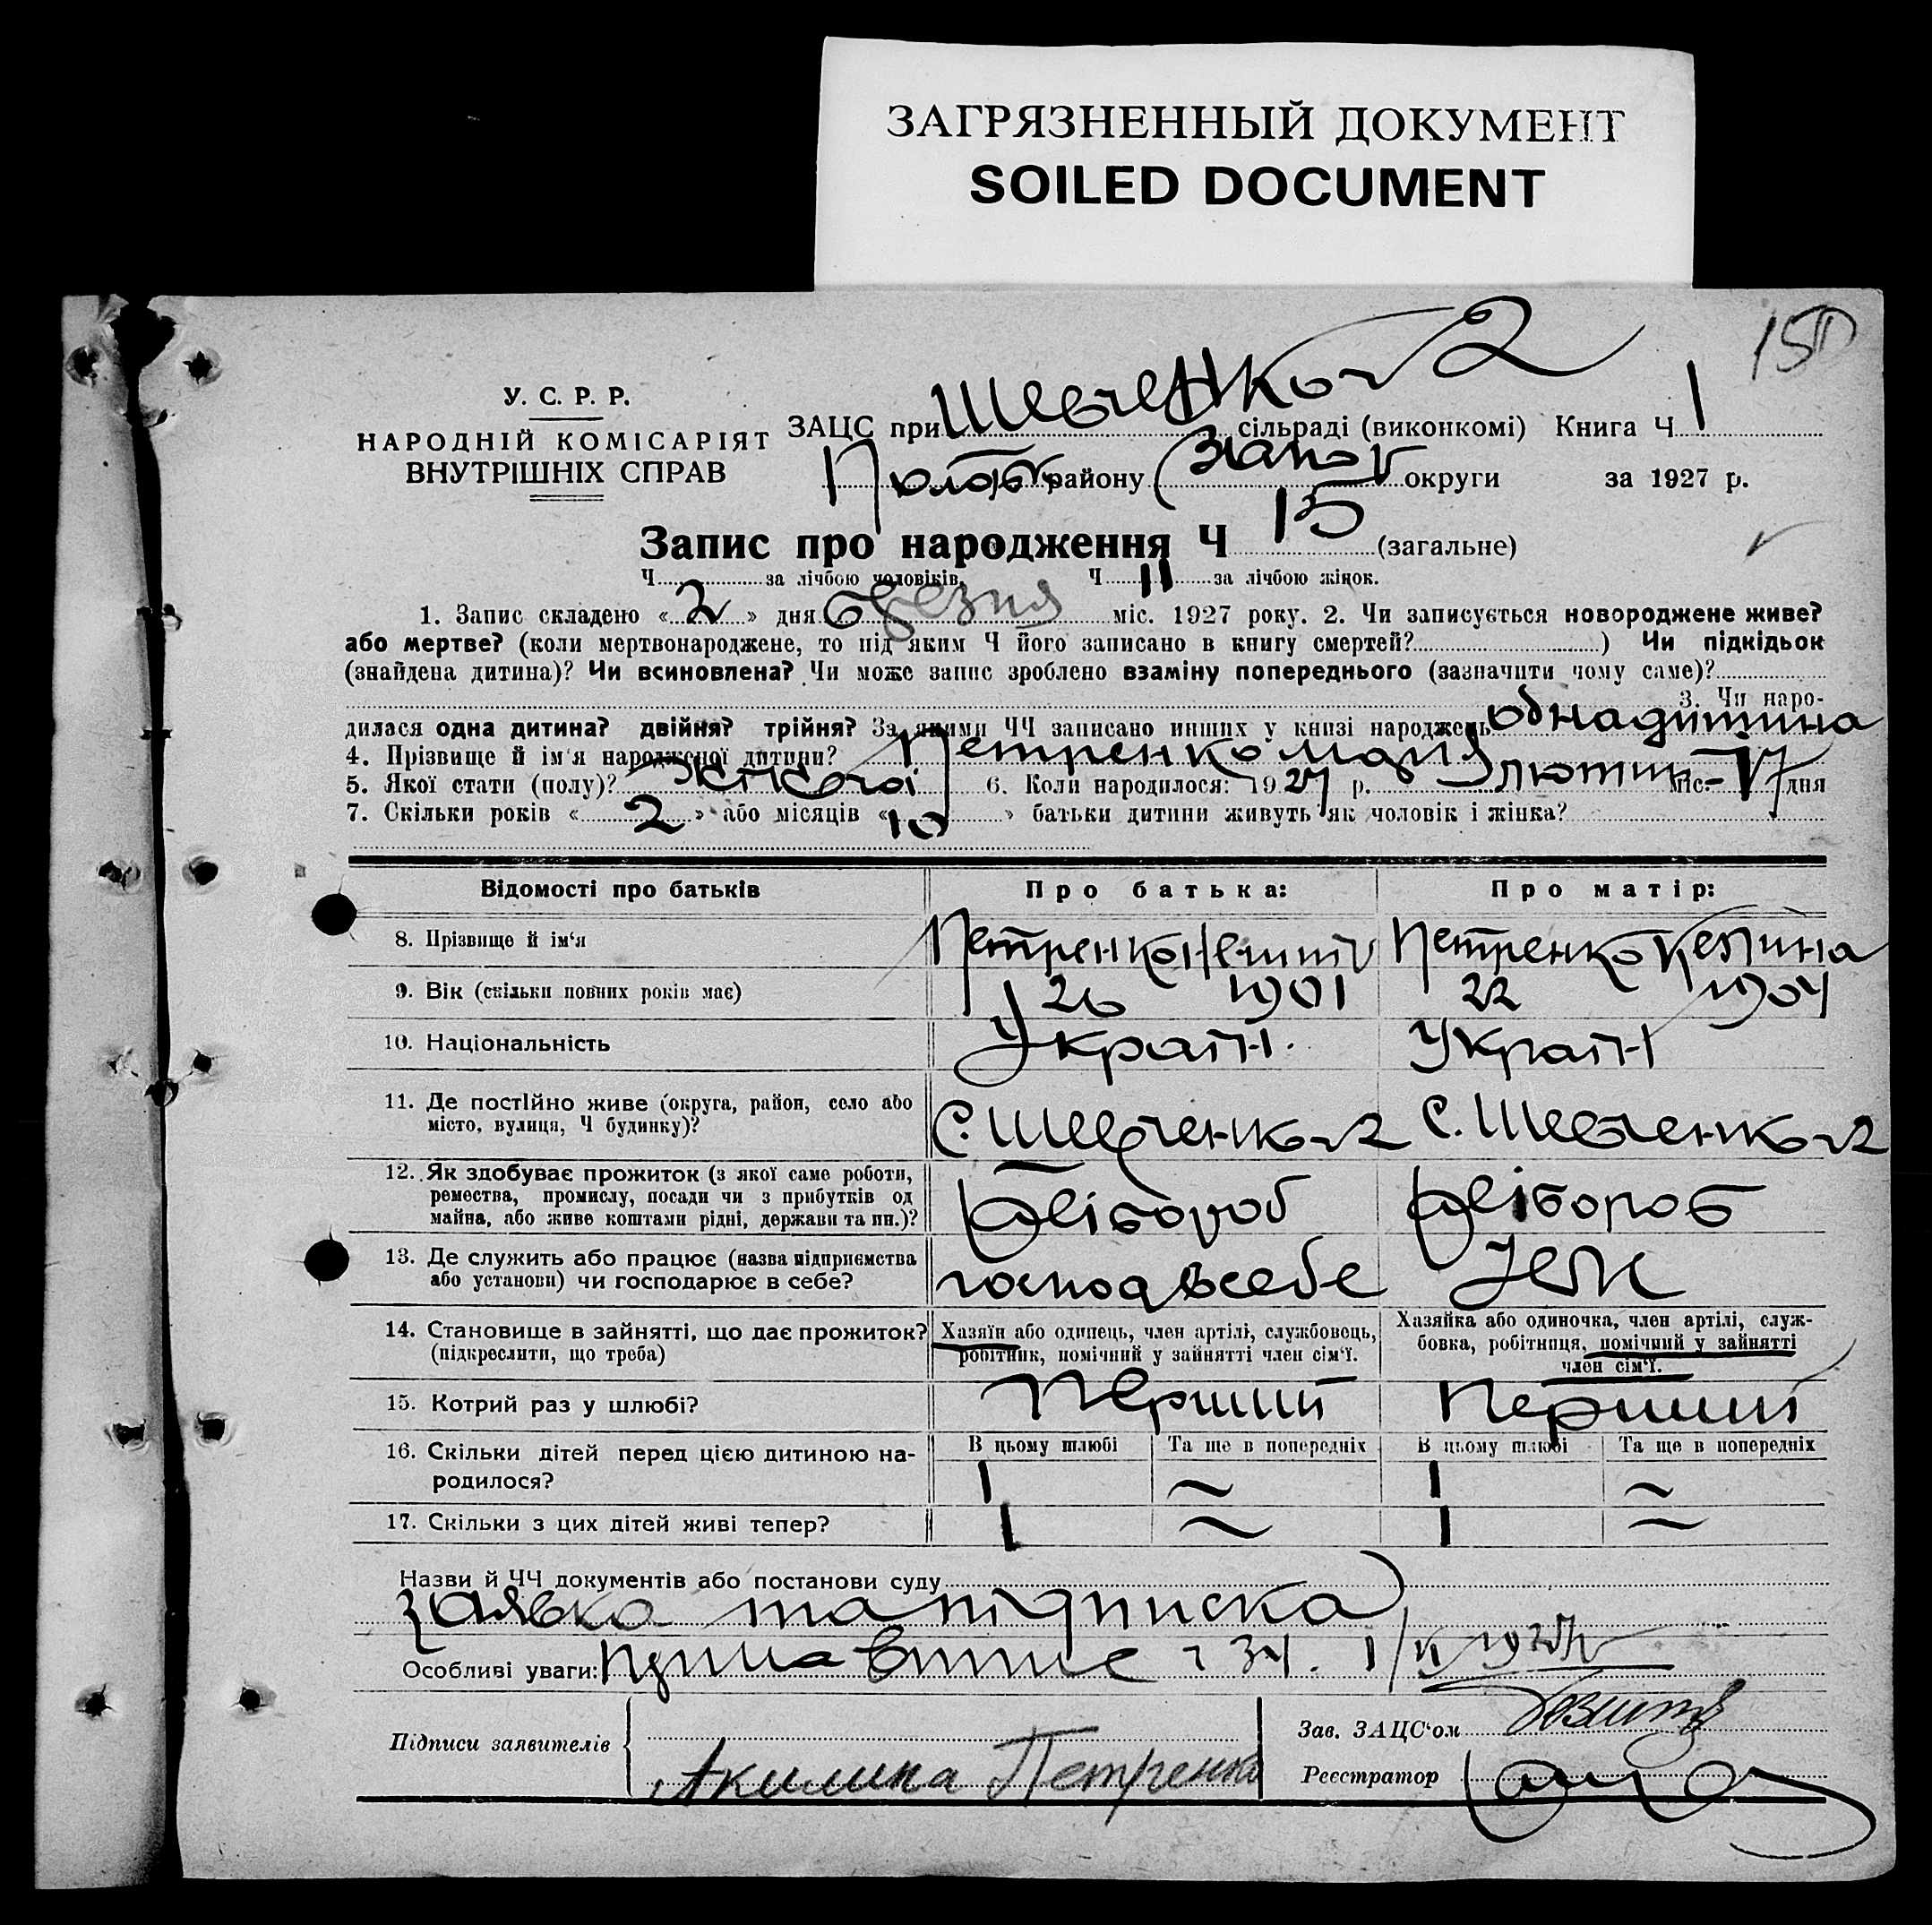 ЗАГРЯЗНЕННЫЙ ДОКУМЕНТ
SOILED DOCUMENT
150
У. С. Р. Р.
НАРОДНІЙ КОМІСАРІЯТ
ВНУТРІШНІХ СПРАВ
ЗАЦС при Шевченков 2 сільраді (виконкомі) Книга Ч 1
Полог району Запор округи за 1927 р.
Запис про народження Ч 15 (загальне)
Ч за лічбою чоловіків. Ч 11 за лічбою жінок.
1. Запис складено «2» дня березня міс. 1927 року. 2. Чи записується новороджене живе?
або мертве? (коли мертвонароджене, то під яким Ч його записано в книгу смертей? ) Чи підкідьок
(знайдена дитина)? Чи всиновлена? Чи може запис зроблено взаміну попереднього (зазначити чому саме)?
3. Чи наро-
дилася одна дитина? двійня? трійня? За якими ЧЧ записано инших у книзі народжень одна дитина
4. Прізвище й ім'я народженої дитини? Петренко Марія
5. Якої стати (полу)? жіночої 6. Коли народилося: 1927 р. лютий міс. 17 дня
7. Скільки років «2» або місяців «10» батьки дитини живуть як чоловік і жінка?
Відомості про батьків Про батька: Про матір:
8. Прізвище й ім'я Петренко Петренко
9. Вік (скільки повних років має) 26 1901 22 1904
10. Національність Україн. Україн
11. Де постійно живе (округа, район, село або
місто, вулиця, Ч будинку)? С. Шевченков 2 С. Шевченков 2
12. Як здобуває прожиток (з якої саме роботи,
ремества, промислу, посади чи з прибутків од
майна, або живе коштами рідні, держави та ин.)? Хлібороб Хлібороб
13. Де служить або працює (назва підприємства
або установи) чи господарює в себе? господ в себе
14. Становище в зайнятті, що дає прожиток?
(підкреслити, що треба)
Хазяїн або одинець, член артілі, службовець,
робітник, помічний у зайнятті член сім'ї.
Хазяйка або одиночка, член артілі, служ-
бовка, робітниця, помічний у зайнятті
член сім'ї.
15. Котрий раз у шлюбі? Перший Перший
В цьому шлюбі Та ще в попередніх В цьому шлюбі Та ще в попередніх
16. Скільки дітей перед цією дитиною на-
родилося? 1 ~ 1 ~
17. Скільки з цих дітей живі тепер? 1 ~ 1 ~
Назви й ЧЧ документів або постанови суду
заявка та підписка
Особливі уваги:
Підписи заявителів
Акилина Петренко
Зав. ЗАЦС'ом
Реєстратор